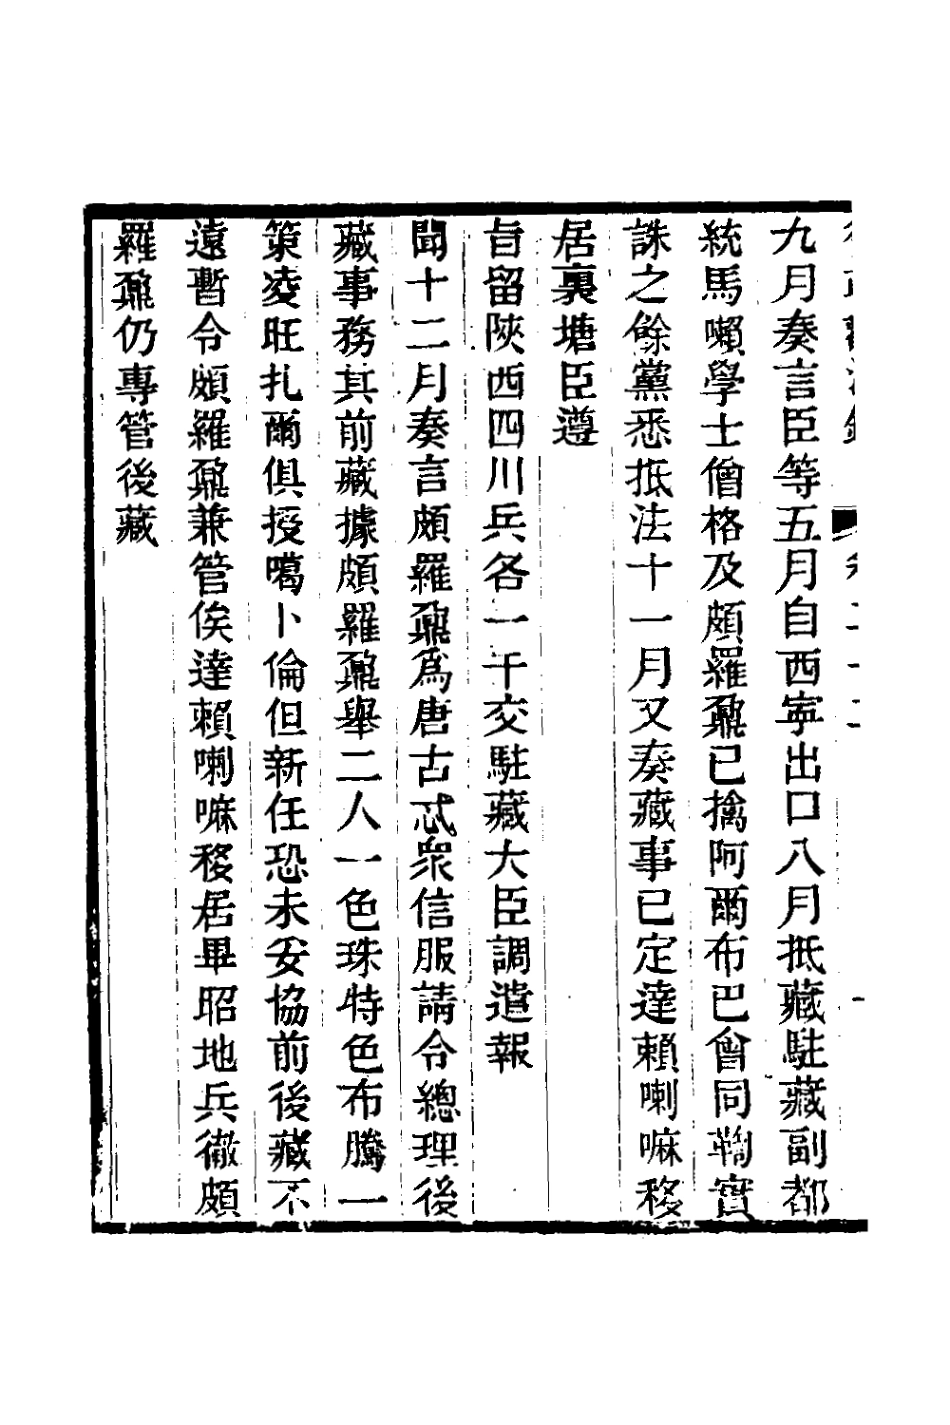 九月奏言臣等五月自西寧出口八月抵藏駐藏副都
統馬喇學士僧格及頗羅鼐已擒阿爾布巴會同鞫實
誅之餘黨悉抵法十一月又奏藏事已定達賴喇嘛移
居裏塘臣遵
旨留陝西四川兵各一千交駐藏大臣調遣報
聞十二月奏言頗羅鼐為唐古忒衆信服請令總理後
藏事務其前藏據頗羅鼐舉二人一色珠特色布騰一
策凌旺扎爾俱授噶卜倫但新任恐未妥協前後藏不
遠暫令頗羅鼐兼管俟達賴喇嘛移居畢昭地兵徹頗
羅鼐仍專管後藏